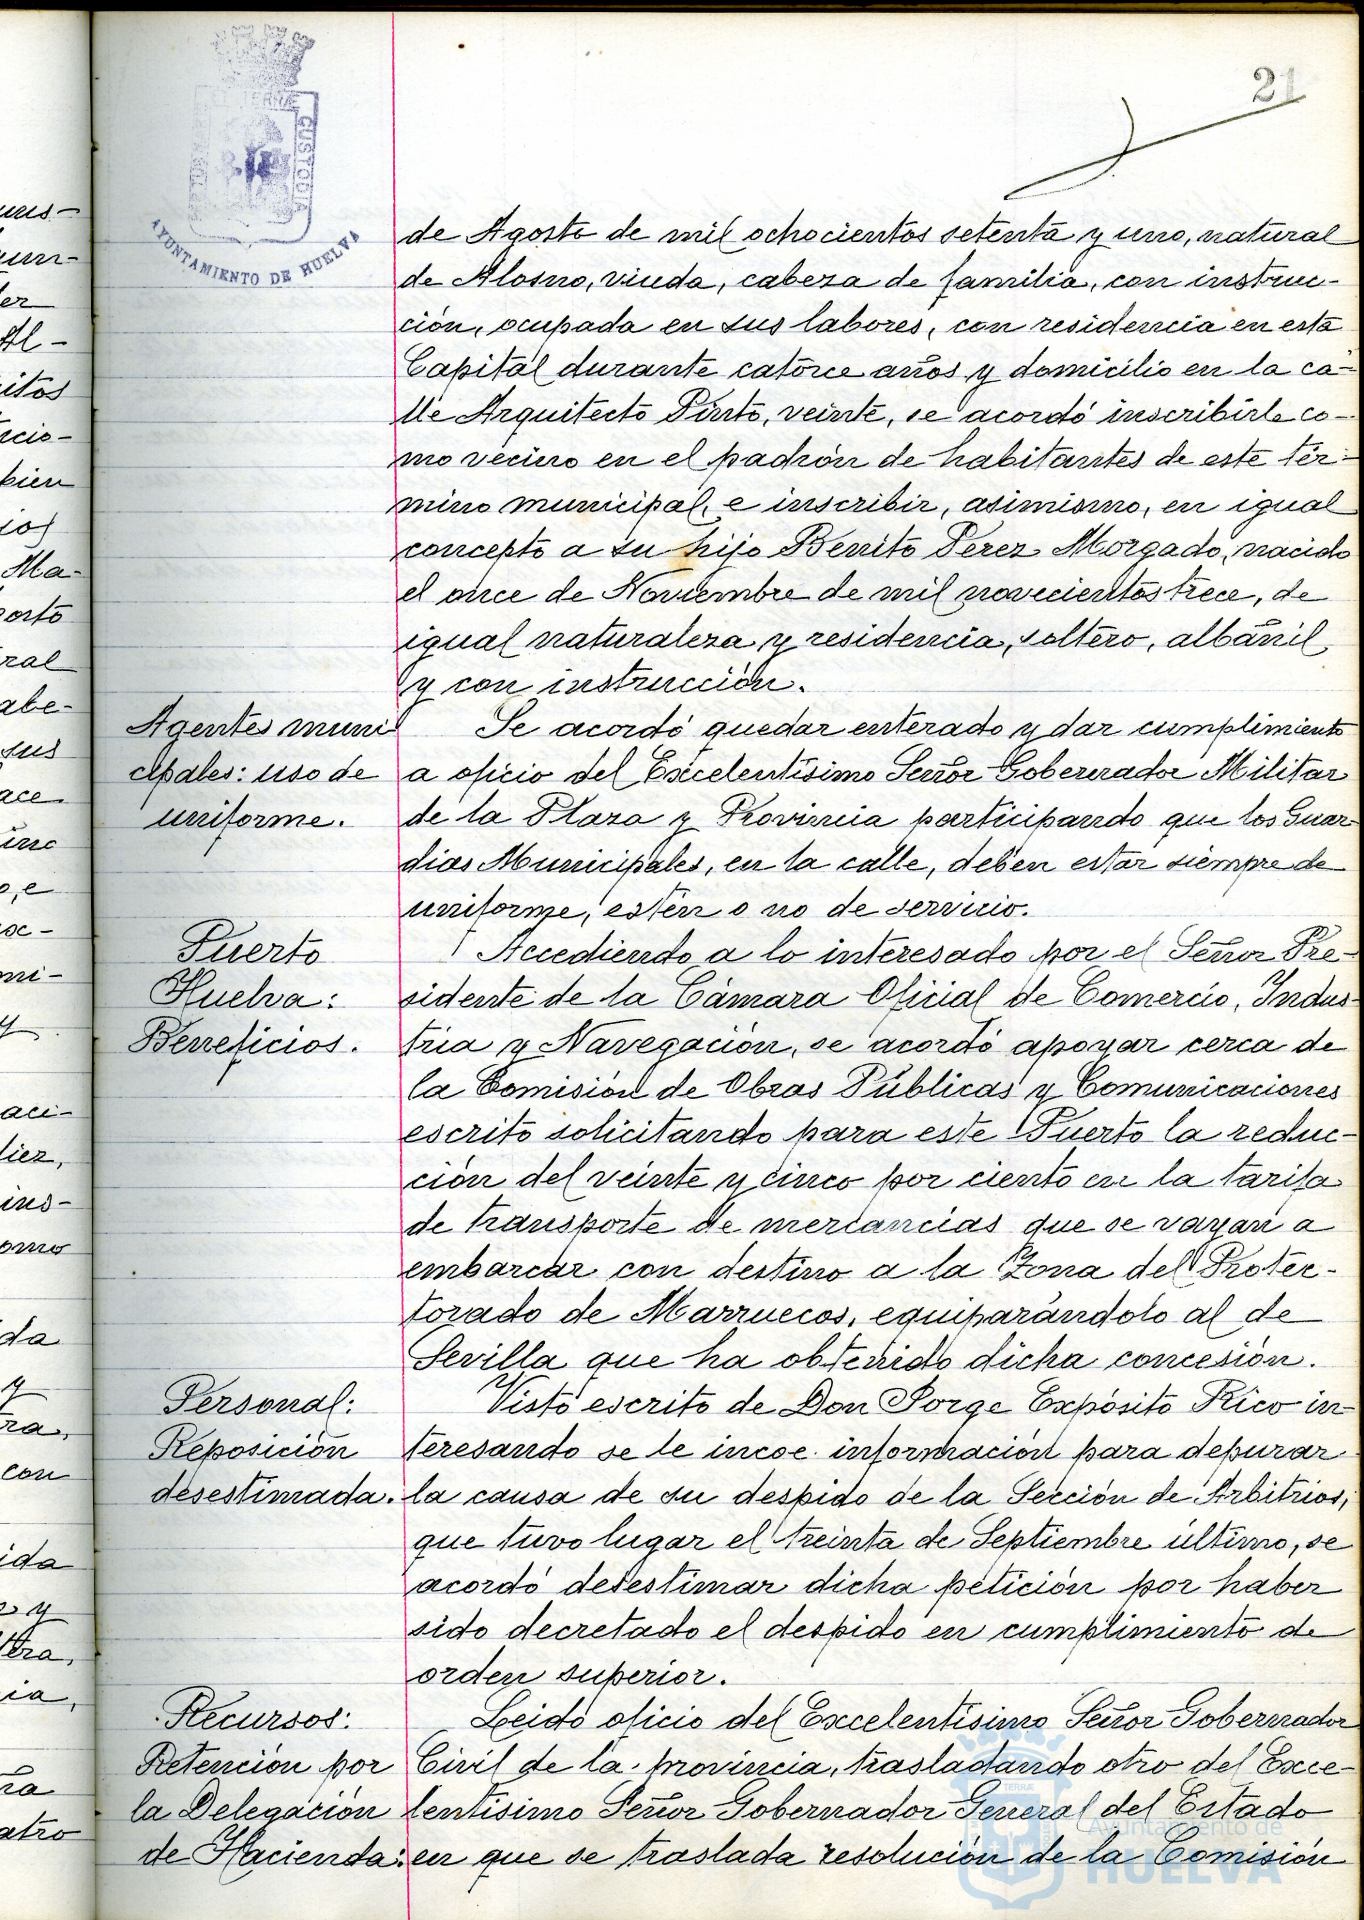 21
TERRÆ
CUSTODIA
AYUNTAMIENTO DE HUELVA
de Agosto de mil ochocientos setenta y uno, natural
de Alosno, viuda, cabeza de familia, con instruc-
ción, ocupada en sus labores, con residencia en esta
Capital durante catorce años y domicilio en la ca-
lle Arquitecto Pinto, veinte, se acordó inscribirle co-
mo vecino en el padrón de habitantes de este tér-
mino municipal, e inscribir, asimismo, en igual
concepto a su hijo Benito Perez Morgado, nacido
el once de Noviembre de mil novecientos trece, de
igual naturaleza y residencia, soltero, albañil
y con instrucción.
Agentes muni
cipales: uso de
uniforme.
Se acordó quedar enterado y dar cumplimiento
a oficio del Excelentísimo Señor Gobernador Militar
de la Plaza y Provincia participando que los Guar-
dias Municipales, en la calle, deben estar siempre de
uniforme, estén o no de servicio.
Puerto
Huelva:
Beneficios.
Accediendo a lo interesado por el Señor Pre-
sidente de la Cámara Oficial de Comercio, Indus-
tria y Navegación, se acordó apoyar cerca de
la Comisión de Obras Públicas y Comunicaciones
escrito solicitando para este Puerto la reduc-
ción del veinte y cinco por ciento en la tarifa
de transporte de mercancías que se vayan a
embarcar con destino a la Zona del Protec-
torado de Marruecos, equiparándolo al de
Sevilla que ha obtenido dicha concesión.
Personal:
Reposición
desestimada.
Visto escrito de Don Jorge Expósito Rico in-
teresando se le incoe información para depurar
la causa de su despido de la Sección de Arbitrios,
que tuvo lugar el treinta de Septiembre último, se
acordó desestimar dicha petición por haber
sido decretado el despido en cumplimiento de
orden superior.
Recursos:
Retención por
la Delegación
de Hacienda:
Leido oficio del Excelentísimo Señor Gobernador
Civil de la provincia, trasladando otro del Exce-
lentísimo Señor Gobernador General del Estado
en que se traslada resolución de la Comisión
Ayuntamiento de
HUELVA